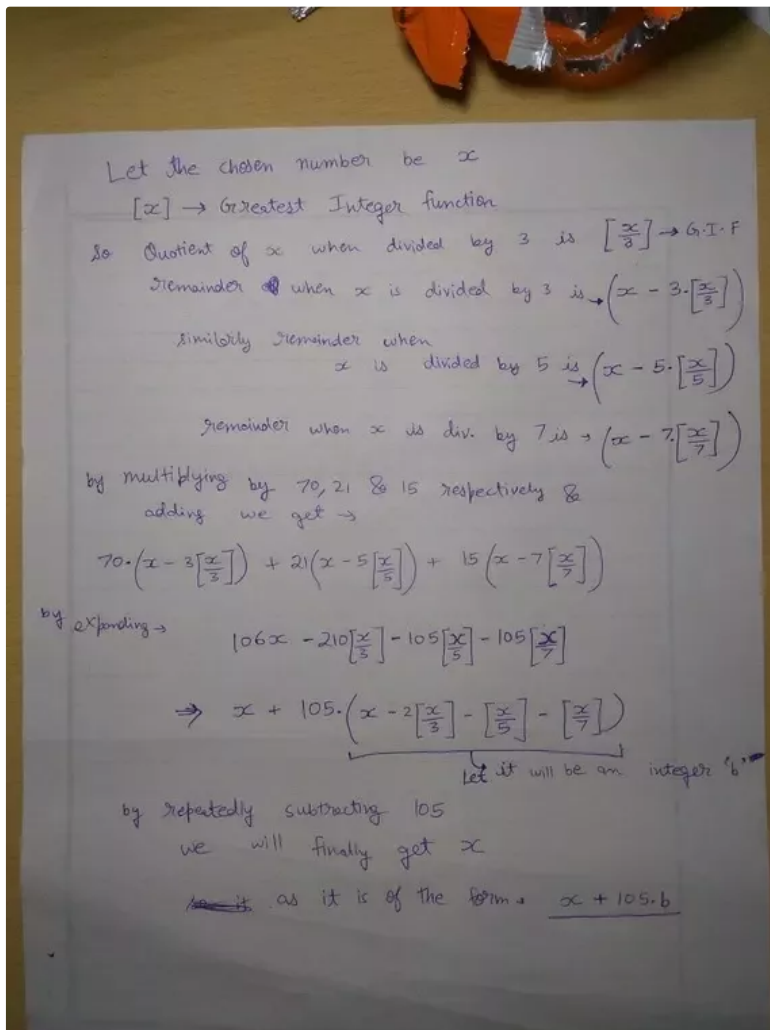 Let the chosen number be x
[x] → Greatest Integer function
So Quotient of x when divided by 3 is [x/3] → G.I.F
remainder when x is divided by 3 is → (x - 3·[x/3])
similarly remainder when
x is divided by 5 is → (x - 5·[x/5])
remainder when x is div. by 7 is → (x - 7·[x/7])
by multiplying by 70, 21 & 15 respectively &
adding we get →
70·(x - 3[x/3]) + 21(x - 5[x/5]) + 15(x - 7[x/7])
by expanding →
106x - 210[x/3] - 105[x/5] - 105[x/7]
⇒ x + 105·(x - 2[x/3] - [x/5] - [x/7])
Let it will be an integer 'b'
by repeatedly subtracting 105
we will finally get x
as it is of the form → x + 105·b